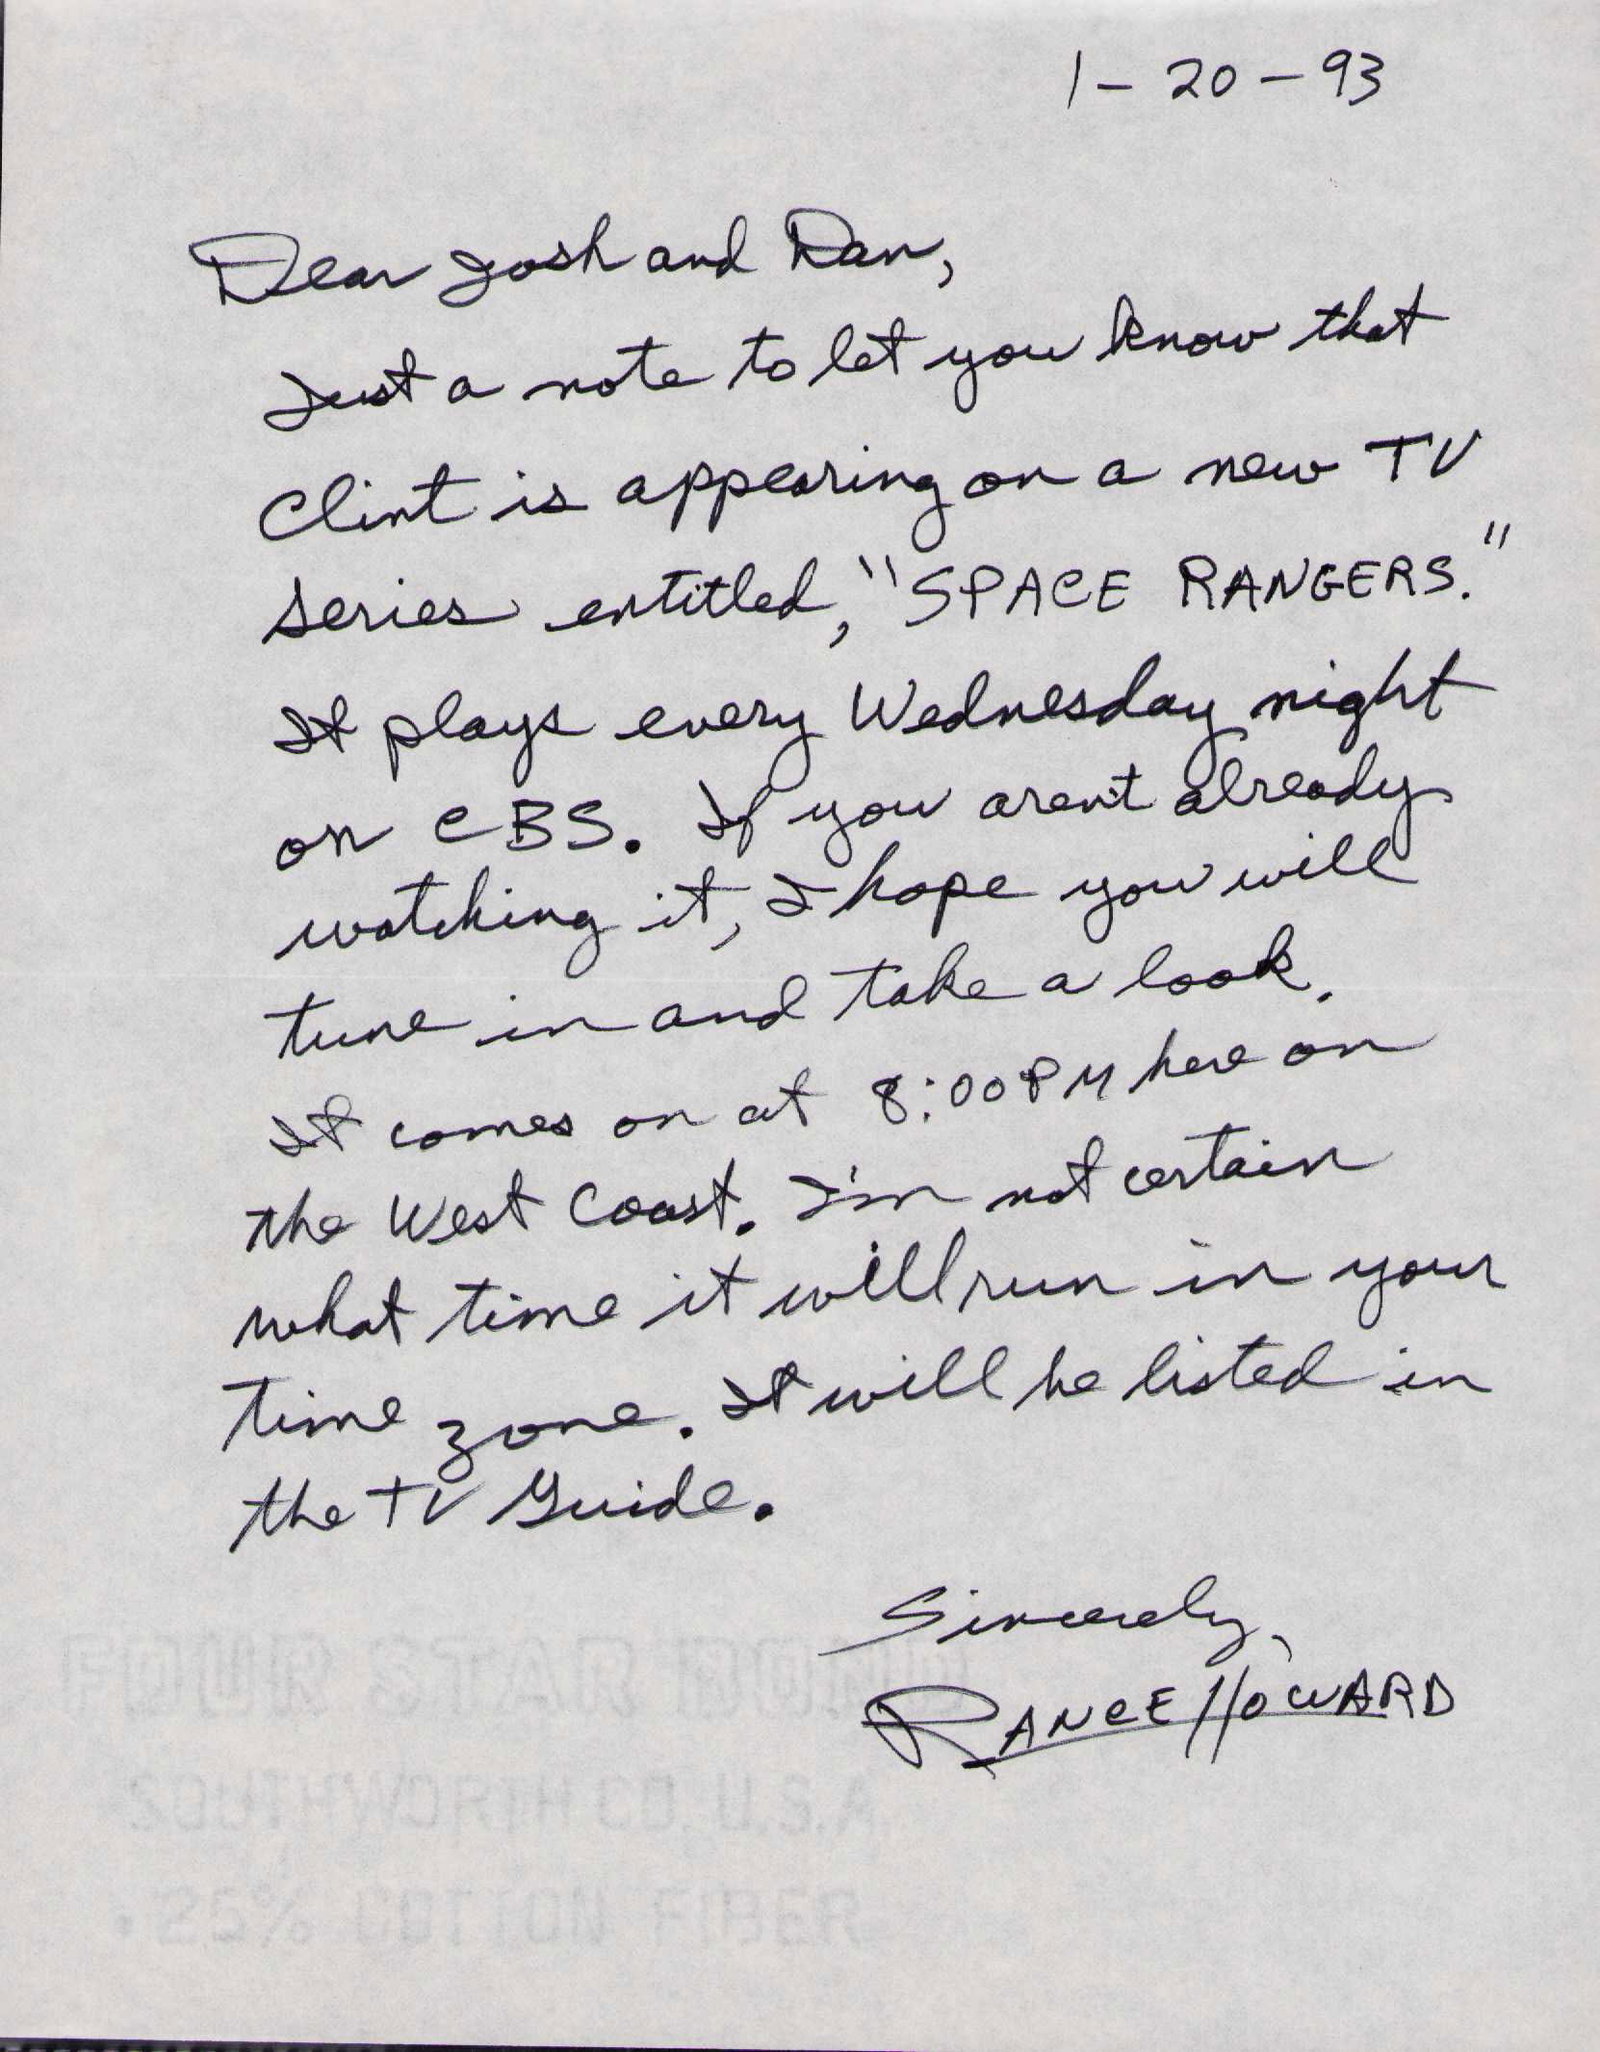 1-20-93
Dear Josh and Dan,
Just a note to let you know that
Clint is appearing on a new TV
series entitled, "SPACE RANGERS."
It plays every Wednesday night
on CBS. If you aren't already
watching it, I hope you will
tune in and take a look.
It comes on at 8:00 PM here on
the West Coast. I'm not certain
what time it will run in your
time zone. It will be listed in
the TV Guide.
Sincerely,
RANCE HOWARD
FOUR STAR BOND
SOUTHWORTH CO. U.S.A.
25% COTTON FIBER